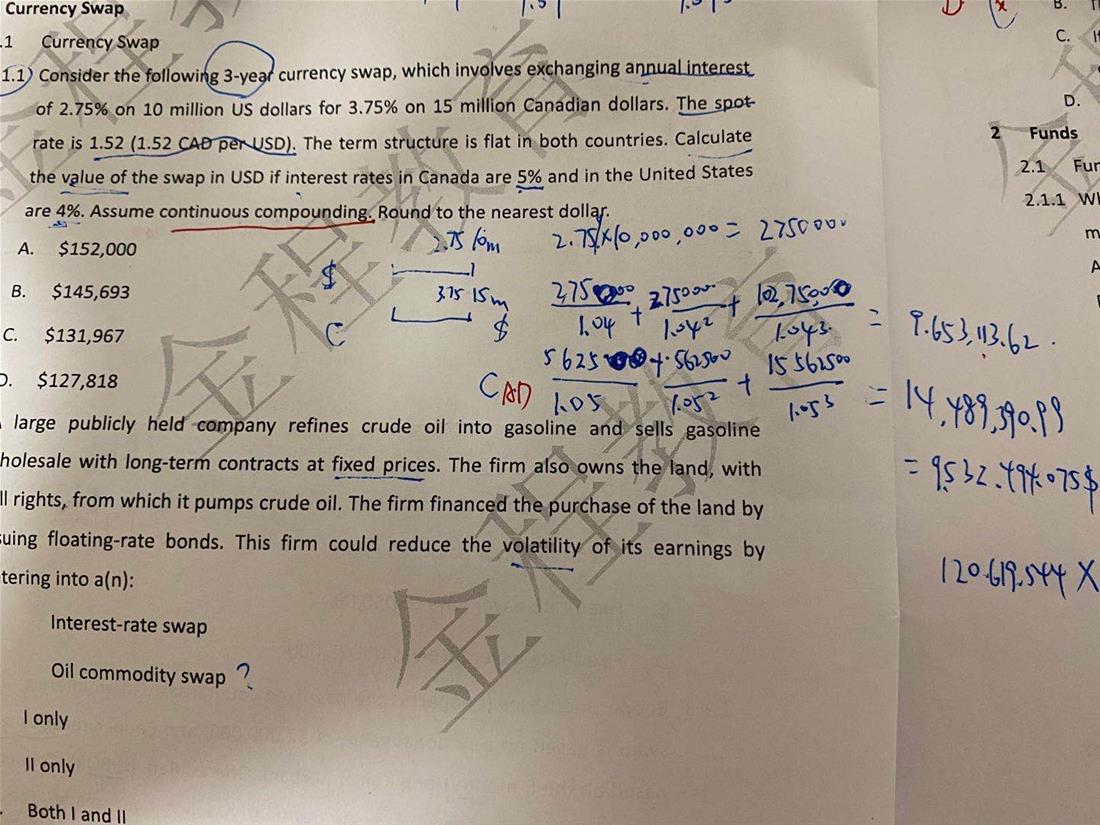 Currency Swap
.1 Currency Swap
1.1) Consider the following 3-year currency swap, which involves exchanging annual interest
of 2.75% on 10 million US dollars for 3.75% on 15 million Canadian dollars. The spot
rate is 1.52 (1.52 CAD per USD). The term structure is flat in both countries. Calculate
the value of the swap in USD if interest rates in Canada are 5% and in the United States
are 4%. Assume continuous compounding. Round to the nearest dollar.
A. $152,000
B. $145,693
C. $131,967
D. $127,818
2.75 10m
$
3.75 15m
C
$
2.75%×10,000,000= 2750000
1.04 + 1.04² + 1.043
= 9.653,113.62
CAD
562500 + 562500 + 15562500
1.05 1.05² 1.05³
= 14,489,390.99
= 9532.494.075$
120.619.544 X
large publicly held company refines crude oil into gasoline and sells gasoline
holesale with long-term contracts at fixed prices. The firm also owns the land, with
ll rights, from which it pumps crude oil. The firm financed the purchase of the land by
suing floating-rate bonds. This firm could reduce the volatility of its earnings by
tering into a(n):
Interest-rate swap
Oil commodity swap ?
I only
II only
Both I and II
B.
C.
D.
2 Funds
2.1 Fun
2.1.1 Wh
m
A
金程教育
金程教育
金程教育